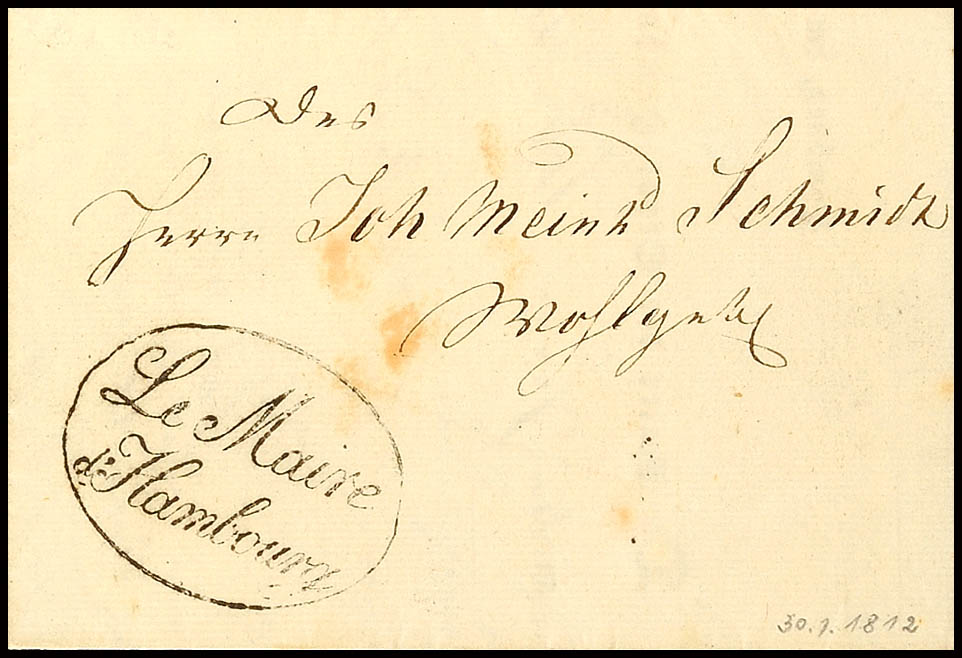 Des
Herrn Joh Meint Schmidt
Wohlgeb
Le Maire
d'Hambourg
30.7.1812